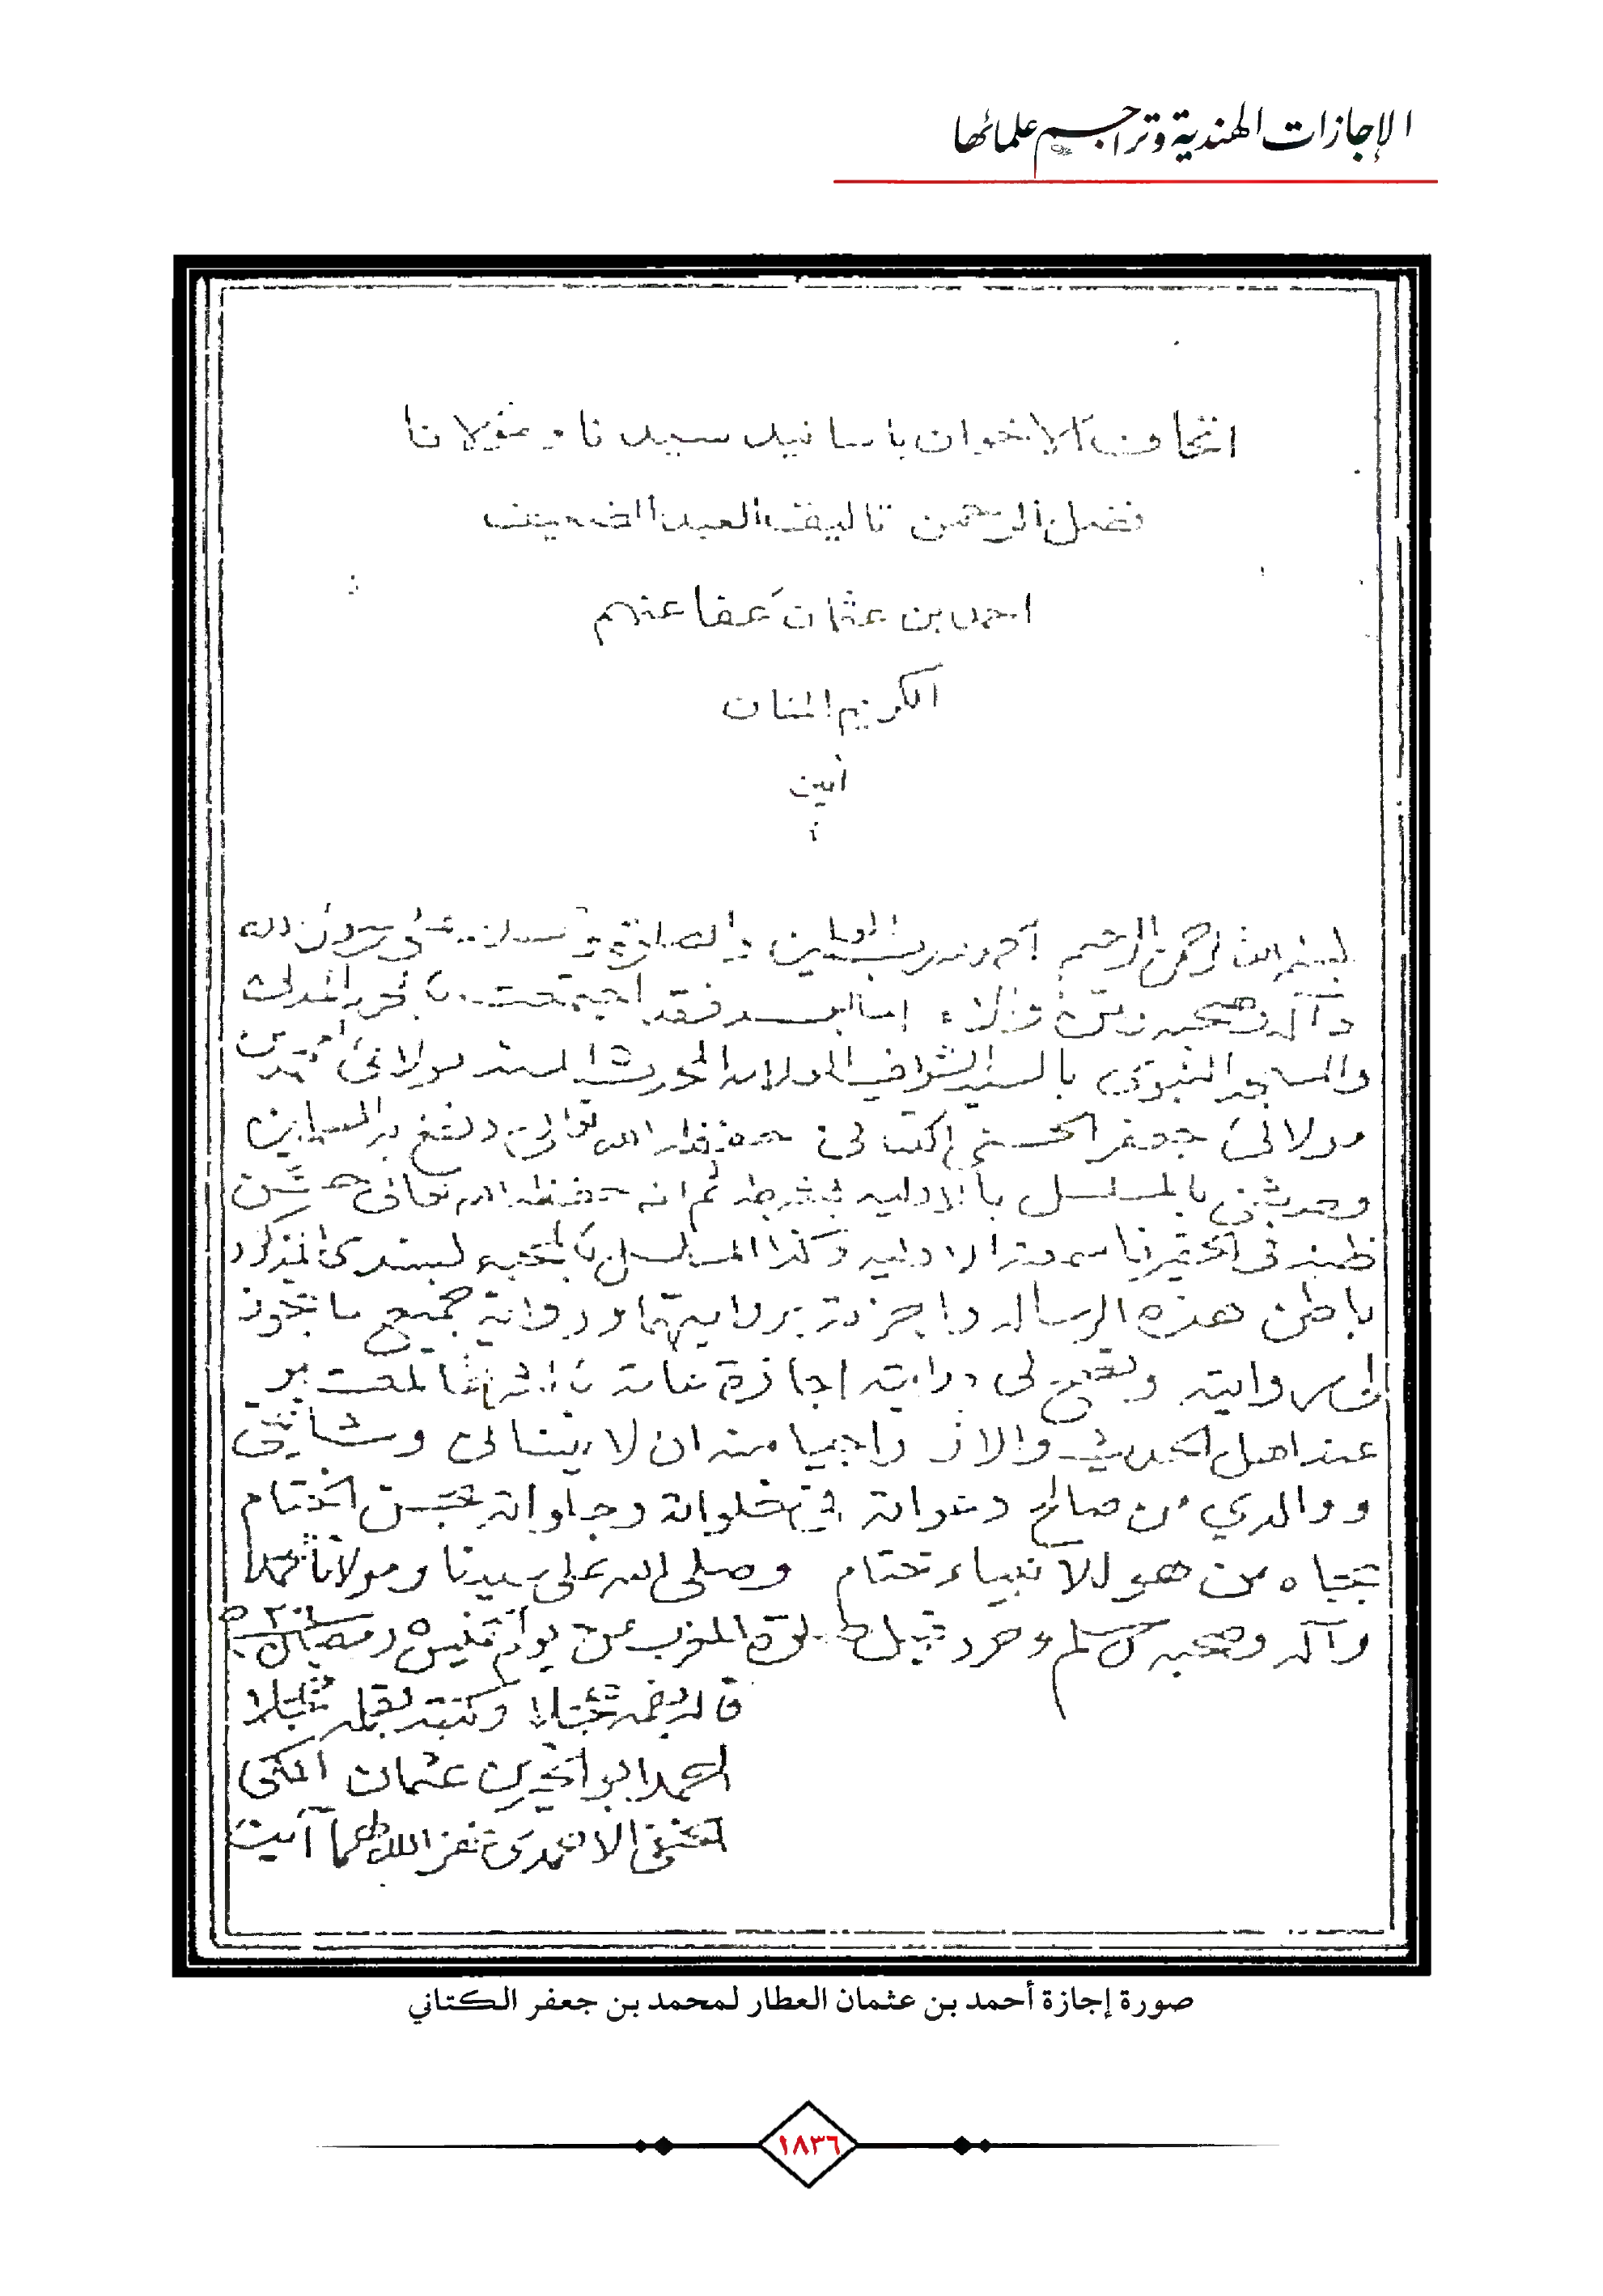 الإجازات الهندية وتراجم علمائها
اتحاف الاخوان باسانيد سيدنا ومولانا
فضل الرحمن تاليف العبد الضعيف
احمد بن عثمان عفا عنهم
الكريم المنان
آمين
بسم الله الرحمن الرحيم الحمد لله رب العالمين والصلاة على رسول الله
وآله وصحبه ومن والاه اما بعد فقد اجتمعت
والمسجد النبوي بالسيد المحدث المسند مولائي محمد بن
مولائي جعفر الحسني الكتاني حفظه الله تعالى ونفع به المسلمين
وحدثني بالمسلسل بالاوليه بشرطه ثم انه حفظه الله تعالى حسن
ظنه في الحقير الاوليه وكذا المسلسل بالمحبه لسندى المذكور
باطن هذه الرساله واجزته بروايتهما ورواية جميع ما تجوز
لي روايته وتصح لى درايته اجازة عامة المعتبر
عند اهل الحديث والاثر راجيا منه ان لا ينسانى ومشائخى
ووالدي من صالح دعواته في خلواته وجلواته بحسن الختام
بجاه من هو للانبياء ختام وصلى الله على سيدنا ومولانا محمد
وآله وصحبه وسلم وحرر قبل صلوة المغرب من يوم الخميس رمضان
قاله بفمه وكتبه بقلمه
احمد ابو الخير بن عثمان المكي
الحنفي الاحمدى غفر الله لهما آمين
صورة إجازة أحمد بن عثمان العطار لمحمد بن جعفر الكتاني
١٨٣٦